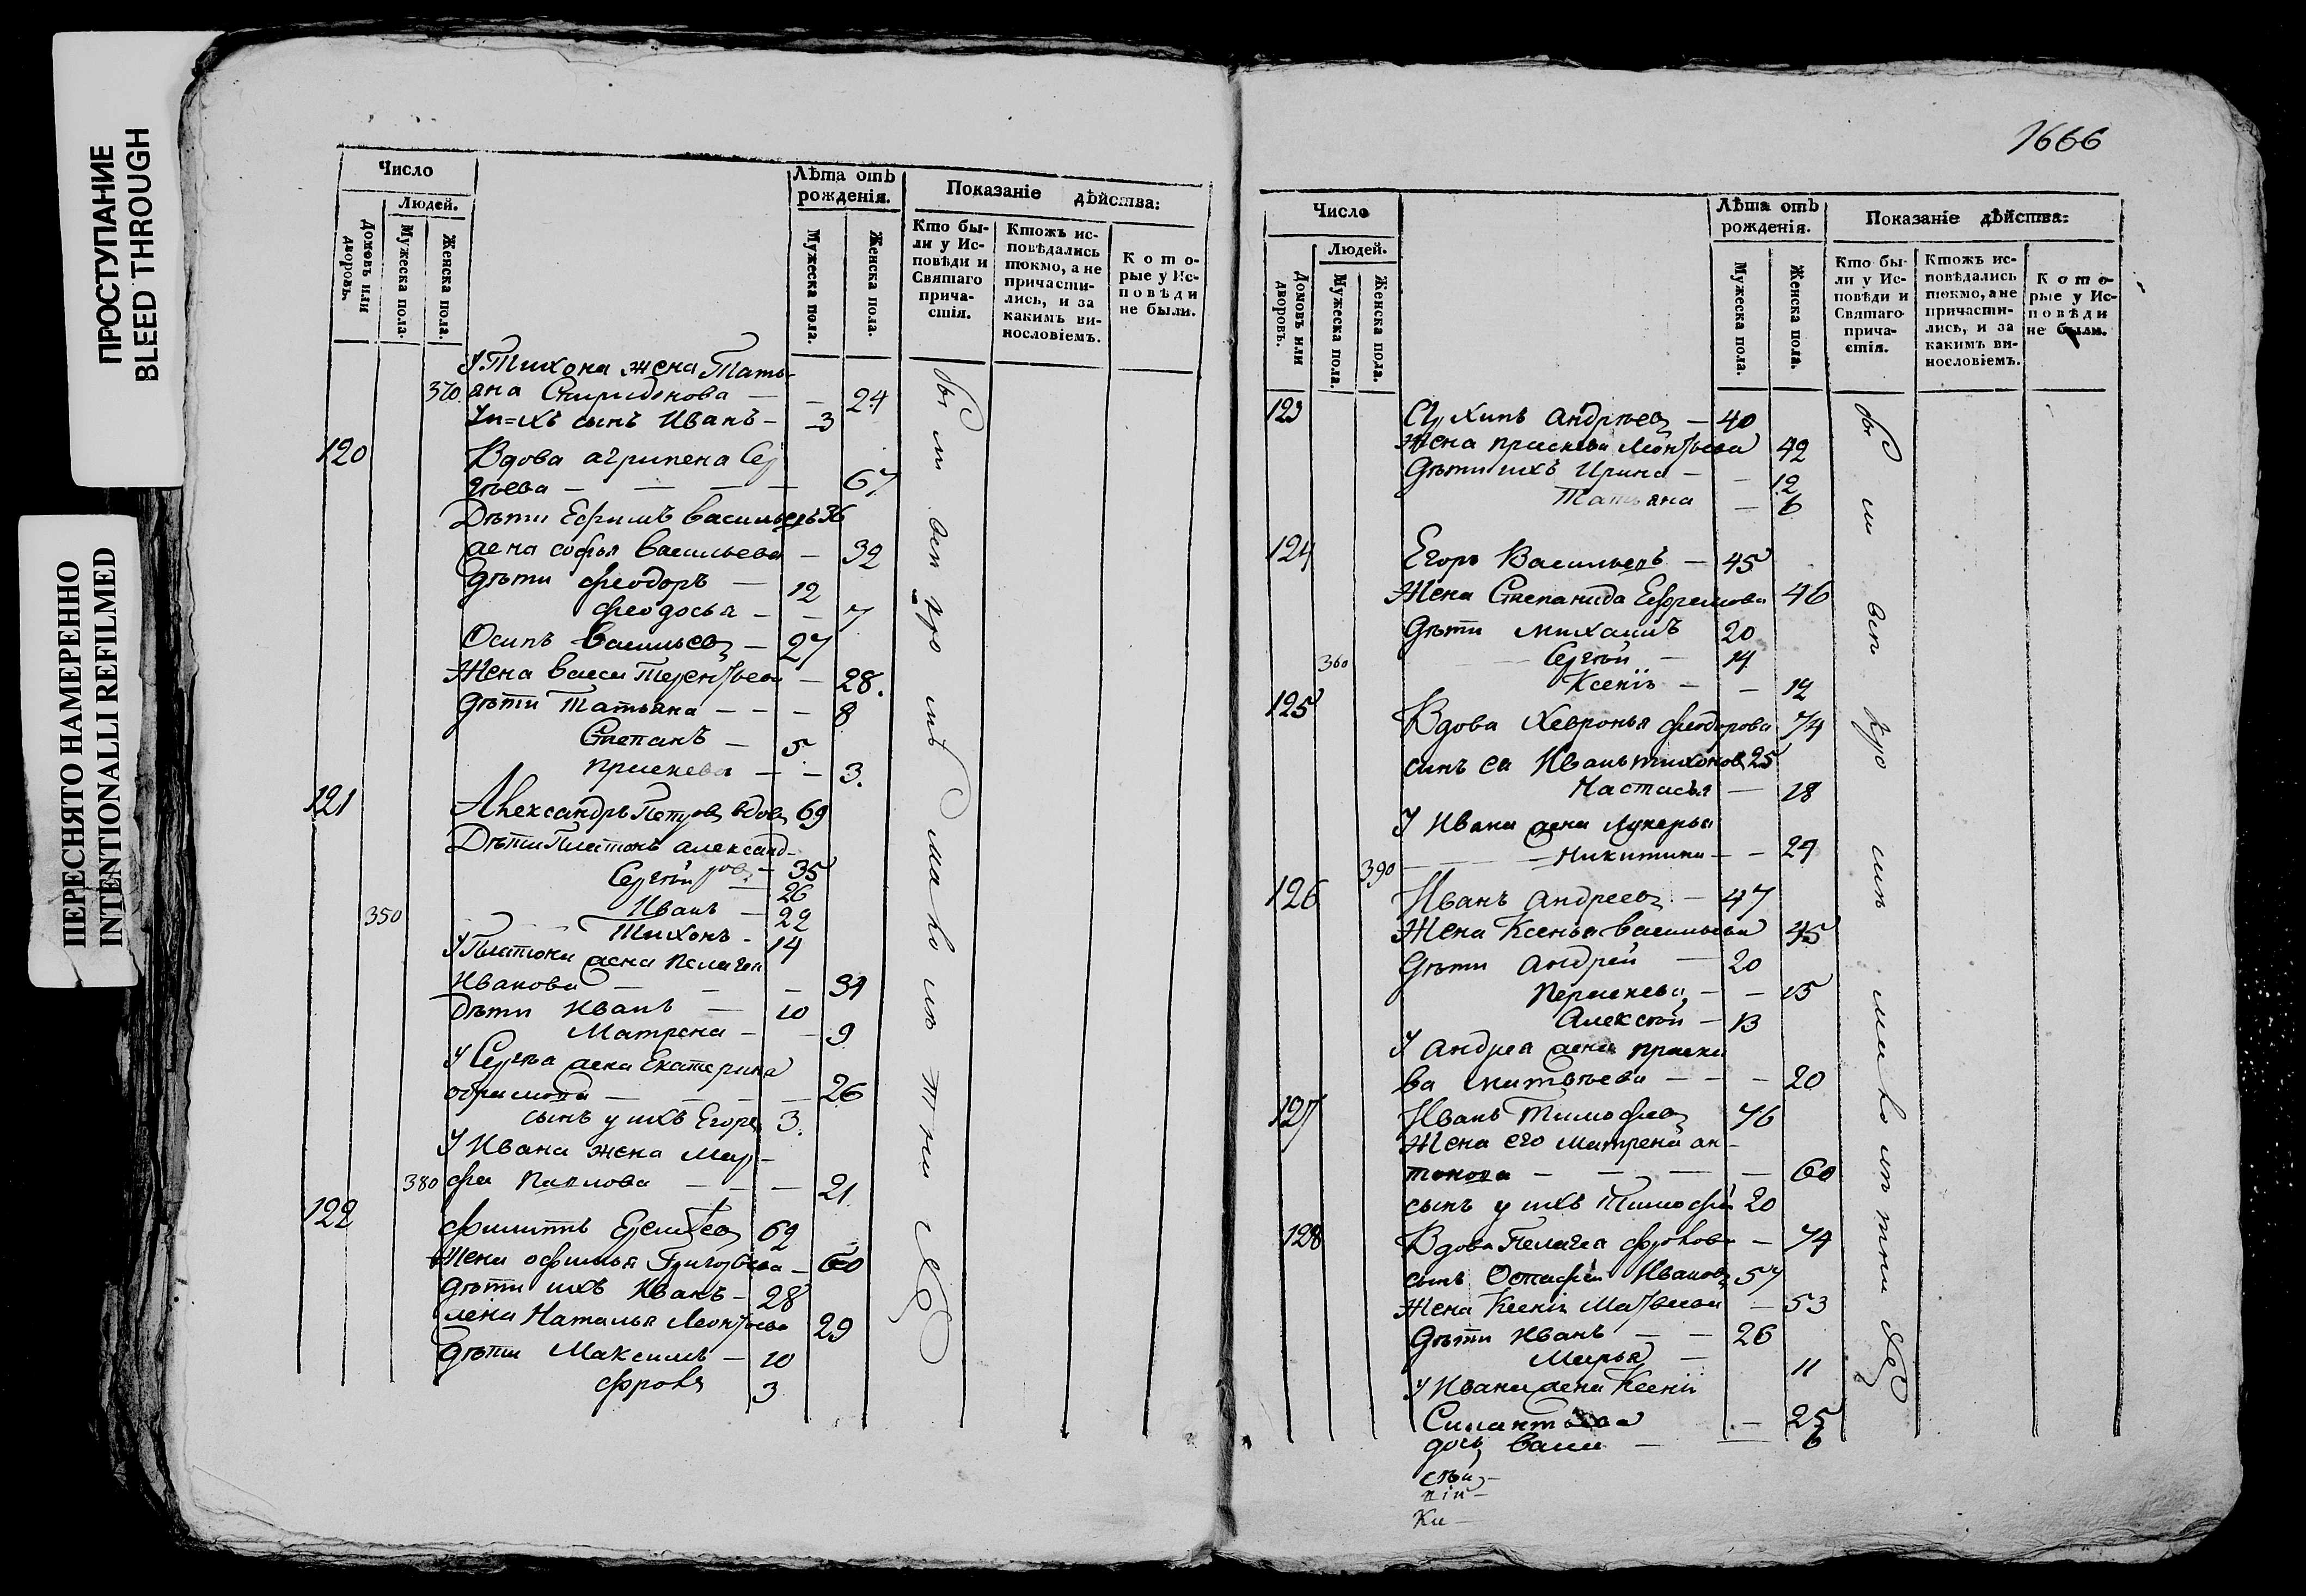 ПРОСТУПАНИЕ
BLEED THROUGH
ПЕРЕСНЯТО НАМЕРЕННО
INTENTIONALLI REFILMED
Число
Людей.
Домовъ или дворовъ.
Мужеска пола.
Женска пола.
Лѣта отъ рожденія.
Мужеска пола.
Женска пола.
Показаніе дѣйства:
Кто бы-
ли у Ис-
повѣди и
Святаго
прича-
стія.
Ктожъ ис-
повѣдались
токмо, а не
причасти-
лись, и за
какимъ ви-
нословіемъ.
Кото-
рые у Ис-
повѣди
не были.
У Тихона жена Тать-
370 яна Спиридонова — — 24
У н=ихъ сынъ Иванъ — 3
120 Вдова агрипена Сер
гѣева — — — — 67
Дѣти Ефимъ васильевъ 36
жена софья васильева — 32
дѣти феодоръ — 12
феодосья — — 7
Осипъ васильев — 27
Жена васса Терентьева — 28.
дѣти Татьяна — — — 8
Степанъ — 5
праскева — — 3.
121 Александръ Петров вдов 69
Дѣти Платонъ александ-
ров — 35
Сергѣй — 26
Иванъ — 22
350 Тихонъ — 14
У Платона жена пелагея
Иванова — — — 34
Дѣти Иванъ — 10
Матрена — — 9
У Сергѣа жена Екатерина
— — — 26
сынъ у ихъ Егоръ 3.
У Ивана жена Мар-
380 фа Павлова — — — 21
122 филиппъ 62
Жена офимья Григорьева — 60
дѣти ихъ Иванъ — 28
жена Наталья Леонтьева 29
дѣти Максимъ — 10
фролъ 3
1666
Число
Людей.
Домовъ или дворовъ.
Мужеска пола.
Женска пола.
Лѣта отъ рожденія.
Мужеска пола.
Женска пола.
Показаніе дѣйства:
Кто бы-
ли у Ис-
повѣди и
Святаго
прича-
стія.
Ктожъ ис-
повѣдались
токмо, а не
причасти-
лись, и за
какимъ ви-
нословіемъ.
Кото-
рые у Ис-
повѣди
не были.
123 андрѣев — 40
Жена праскева Леонтьева 42
дѣти ихъ Ирина — — 12
Татьяна — 6
124 Егоръ Васильевъ — 45
Жена Степанида Ефремова 46
дѣти михаилъ 20
360 Сергѣй — 14
Ксенія — — 12
125 Вдова Хевронья феодорова 74
синъ ея Иванъ тихонов 25
Настасья — 18
У Ивана жена лукерья
390 Никитина — — 24
126 Иванъ андреев — 47
Жена Ксенья васильева 45
дѣти андрей — 20
— — 15
Алексѣй — 13
У андреа жена праске
ва — — — 20
127 Иванъ Тимофеев 76
Жена его матрена ан-
тонова — — — — 60
сынъ у ихъ Тимофей 20
128 Вдова Пелагея фролова — 74
сынъ Иванов 57
Жена Ксенія Матвеева — 53
дѣти Иванъ — — 26
Марья — 11
У Ивана жена Ксенія
— 25
дочь васи — — 6